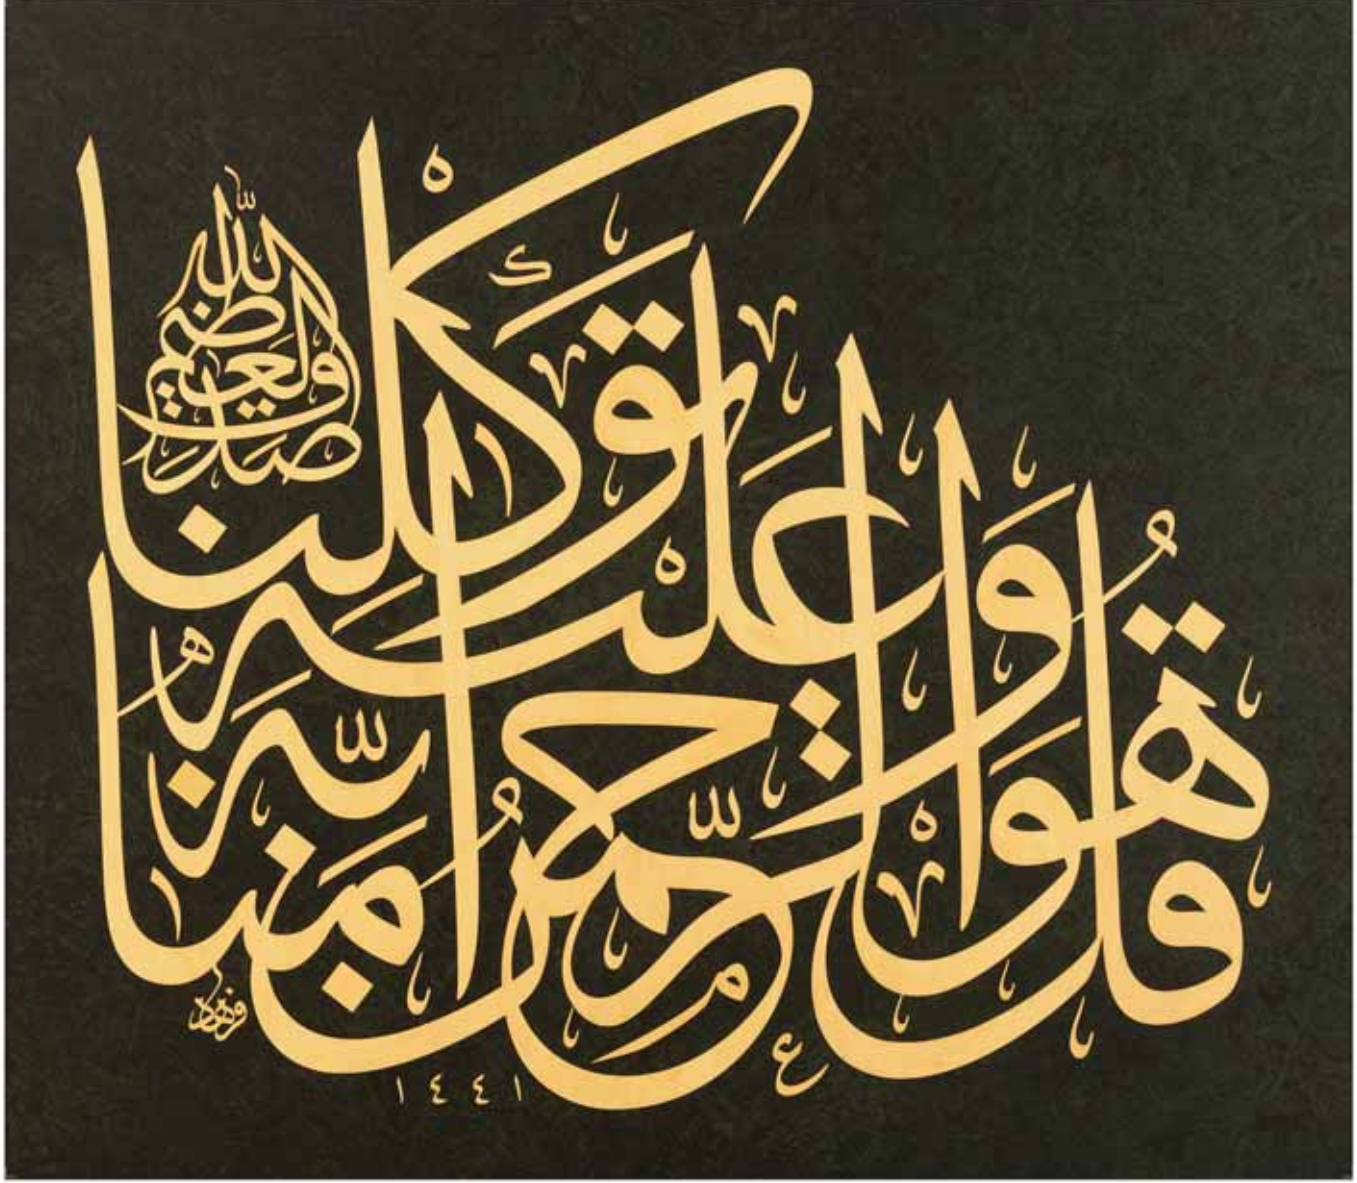 قُلْ هُوَ الرَّحْمٰنُ اٰمَنَّا بِهٖ وَعَلَيْهِ تَوَكَّلْنَا
صدق الله العظيم
١٤٤١